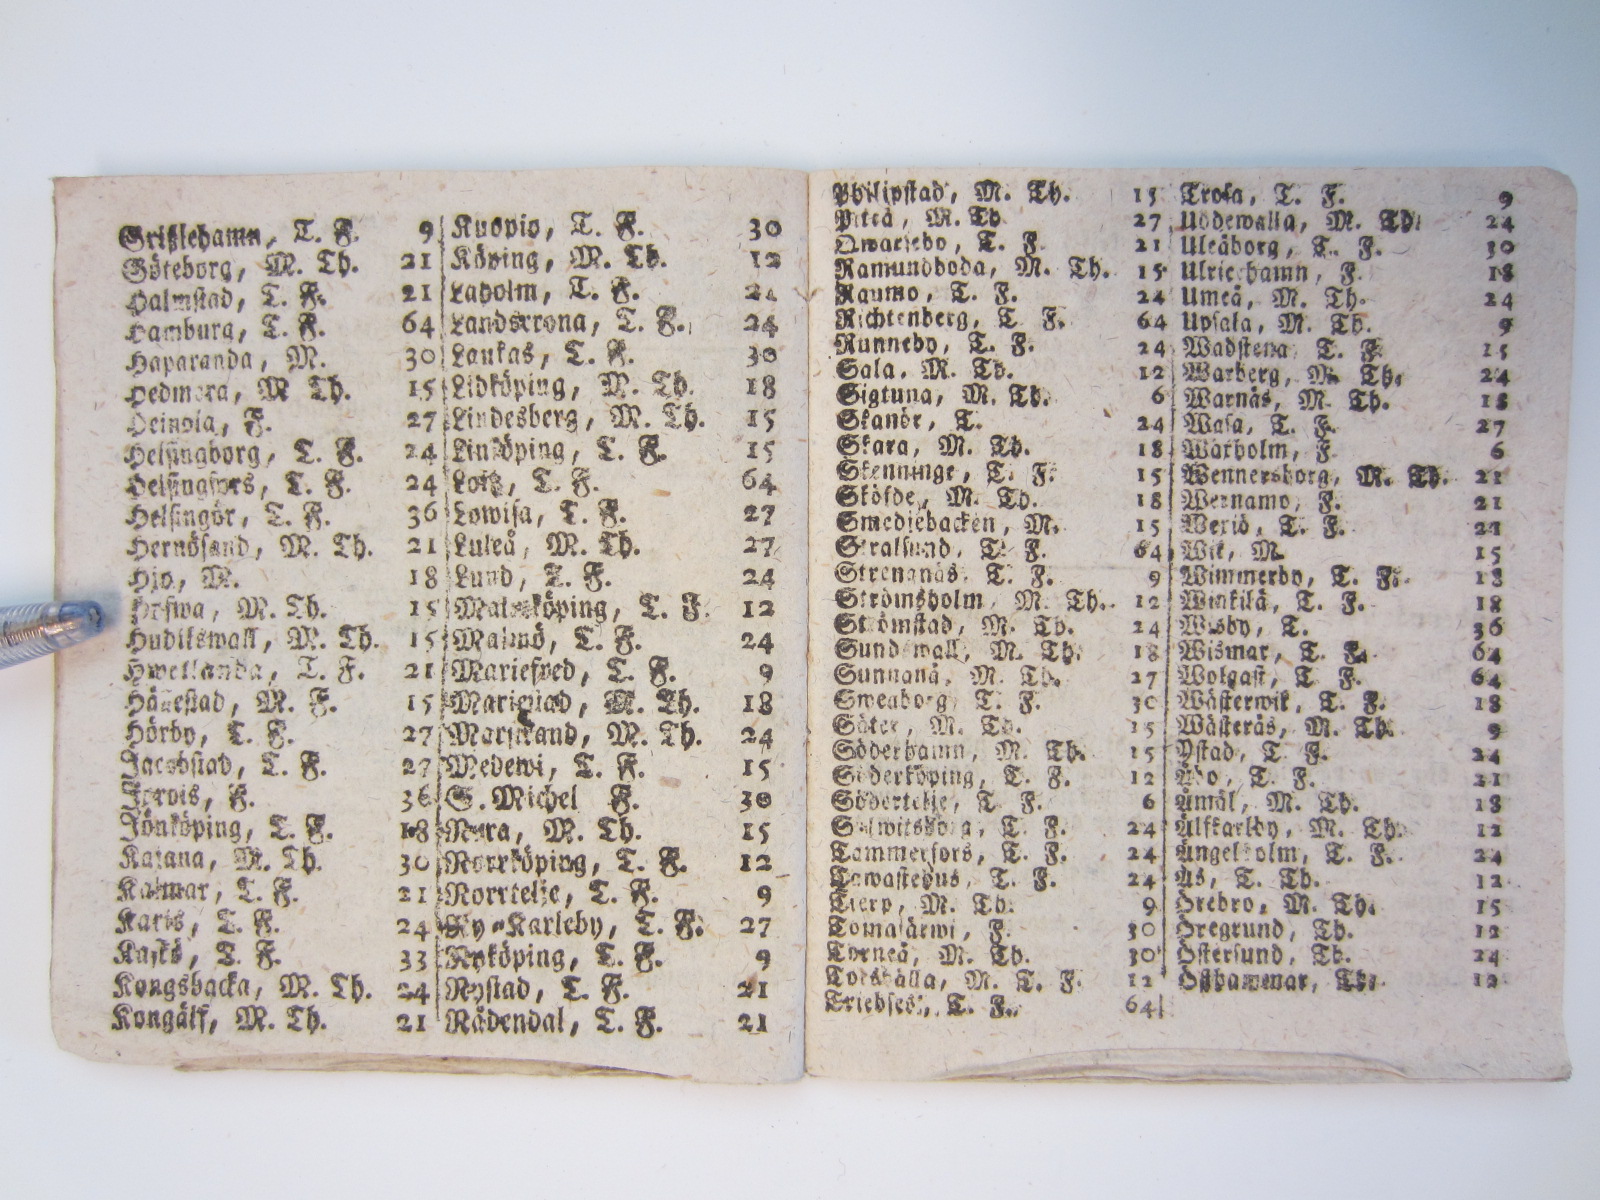 Grißlehamn, T. F. 9
Göteborg, M. Th. 21
Halmstad, T. F. 21
Hamburg, T. F. 64
Haparanda, M. 30
Hedmora, M Th. 15
Heinola, F. 27
Helsingborg, T. F. 24
Helsingfors, T. F. 24
Helsingör, T. F. 36
Hernösand, M. Th. 21
Hjo, M. 18
M. Th. 15
Hudikswall, M. Th. 15
Hwetlanda, T. F. 21
M. F. 15
Hörby, T. F. 27
Jacobstad, T. F. 27
Jorois, F. 36
Jönköping, T. F. 18
Kajana, M. Th. 30
Kalmar, T. F. 21
Karis, T. F. 24
Kaskö, T. F. 33
Kongsbacka, M. Th. 24
Kongälf, M. Th. 21
Kuopio, T. F. 30
Köping, M. Th. 12
Laholm, T. F. 24
Landscrona, T. F. 24
Laukas, T. F. 30
Lidköping, M. Th. 18
Lindesberg, M. Th. 15
Linköping, T. F. 15
Loitz, T. F. 64
Lowisa, T. F. 27
Luleå, M. Th. 27
Lund, T. F. 24
Malmköping, T. F. 12
Malmö, T. F. 24
Mariefred, T. F. 9
Mariestad, M. Th. 18
Marstrand, M. Th. 24
Medewi, T. F. 15
S. Michel F. 30
Nora, M. Th. 15
Norrköping, T. F. 12
Norrtelje, T. F. 9
Ny-Karleby, T. F. 27
Nyköping, T. F. 9
Nystad, T. F. 21
Nådendal, T. F. 21
Philipstad, M. Th. 15
Piteå, M. Th 27
Qwarsebo, T. F. 21
Ramundboda, M. Th. 15
Raumo, T. F. 24
Richtenberg, T. F. 64
Runneby, T. F. 24
Sala, M. Th. 12
Sigtuna, M. Th. 6
Skanör, T. 24
Skara, M. Th. 18
Skenninge, T. F. 15
Sköfde, M. Th. 18
Smedjebacken, M. 15
Stralsund, T. F. 64
Strengnäs, T. F. 9
Strömsholm, M. Th. 12
Strömstad, M. Th. 24
Sundswall, M. Th. 18
Sunnanå, M. Th. 27
Sweaborg, T. F. 30
Säter, M. Th. 15
Söderhamn, M. Th. 15
Söderköping, T. F. 12
Södertelje, T. F. 6
Sölwitsborg, T. F. 24
Tammerfors, T. F. 24
Tawastehus, T. F. 24
Tierp, M. Th. 9
Tomajärwi, F. 30
Torneå, M. Th. 30
Torshälla, M. T. F. 12
Triebsees, T. F. 64
Trosa, T. F. 9
Uddewalla, M. Th. 24
Uleåborg, T. F. 30
Ulricehamn, F. 18
Umeå, M. Th. 24
Upsala, M. Th. 9
Wadstena T. F. 15
Warberg, M. Th. 24
Warnäs, M. Th. 18
Wasa, T. F. 27
Waxholm, F. 6
Wennersborg, M. Th. 21
Wernamo, F. 21
Wexiö, T. F. 21
Wik, M. 15
Wimmerby, T. F. 18
Winkilä, T. F. 18
Wisby, T. 36
Wismar, T. F. 64
Wolgast, T. F. 64
Wästerwik, T. F. 18
Wästerås, M. Th. 9
Ystad, T. F. 24
Åbo, T. F. 21
Åmål, M. Th. 18
Älfkarleby, M. Th. 12
Ängelholm, T. F. 24
Ås, T. Th. 12
Örebro, M. Th. 15
Öregrund, Th. 12
Östersund, Th. 24
Östhammar, Th. 12